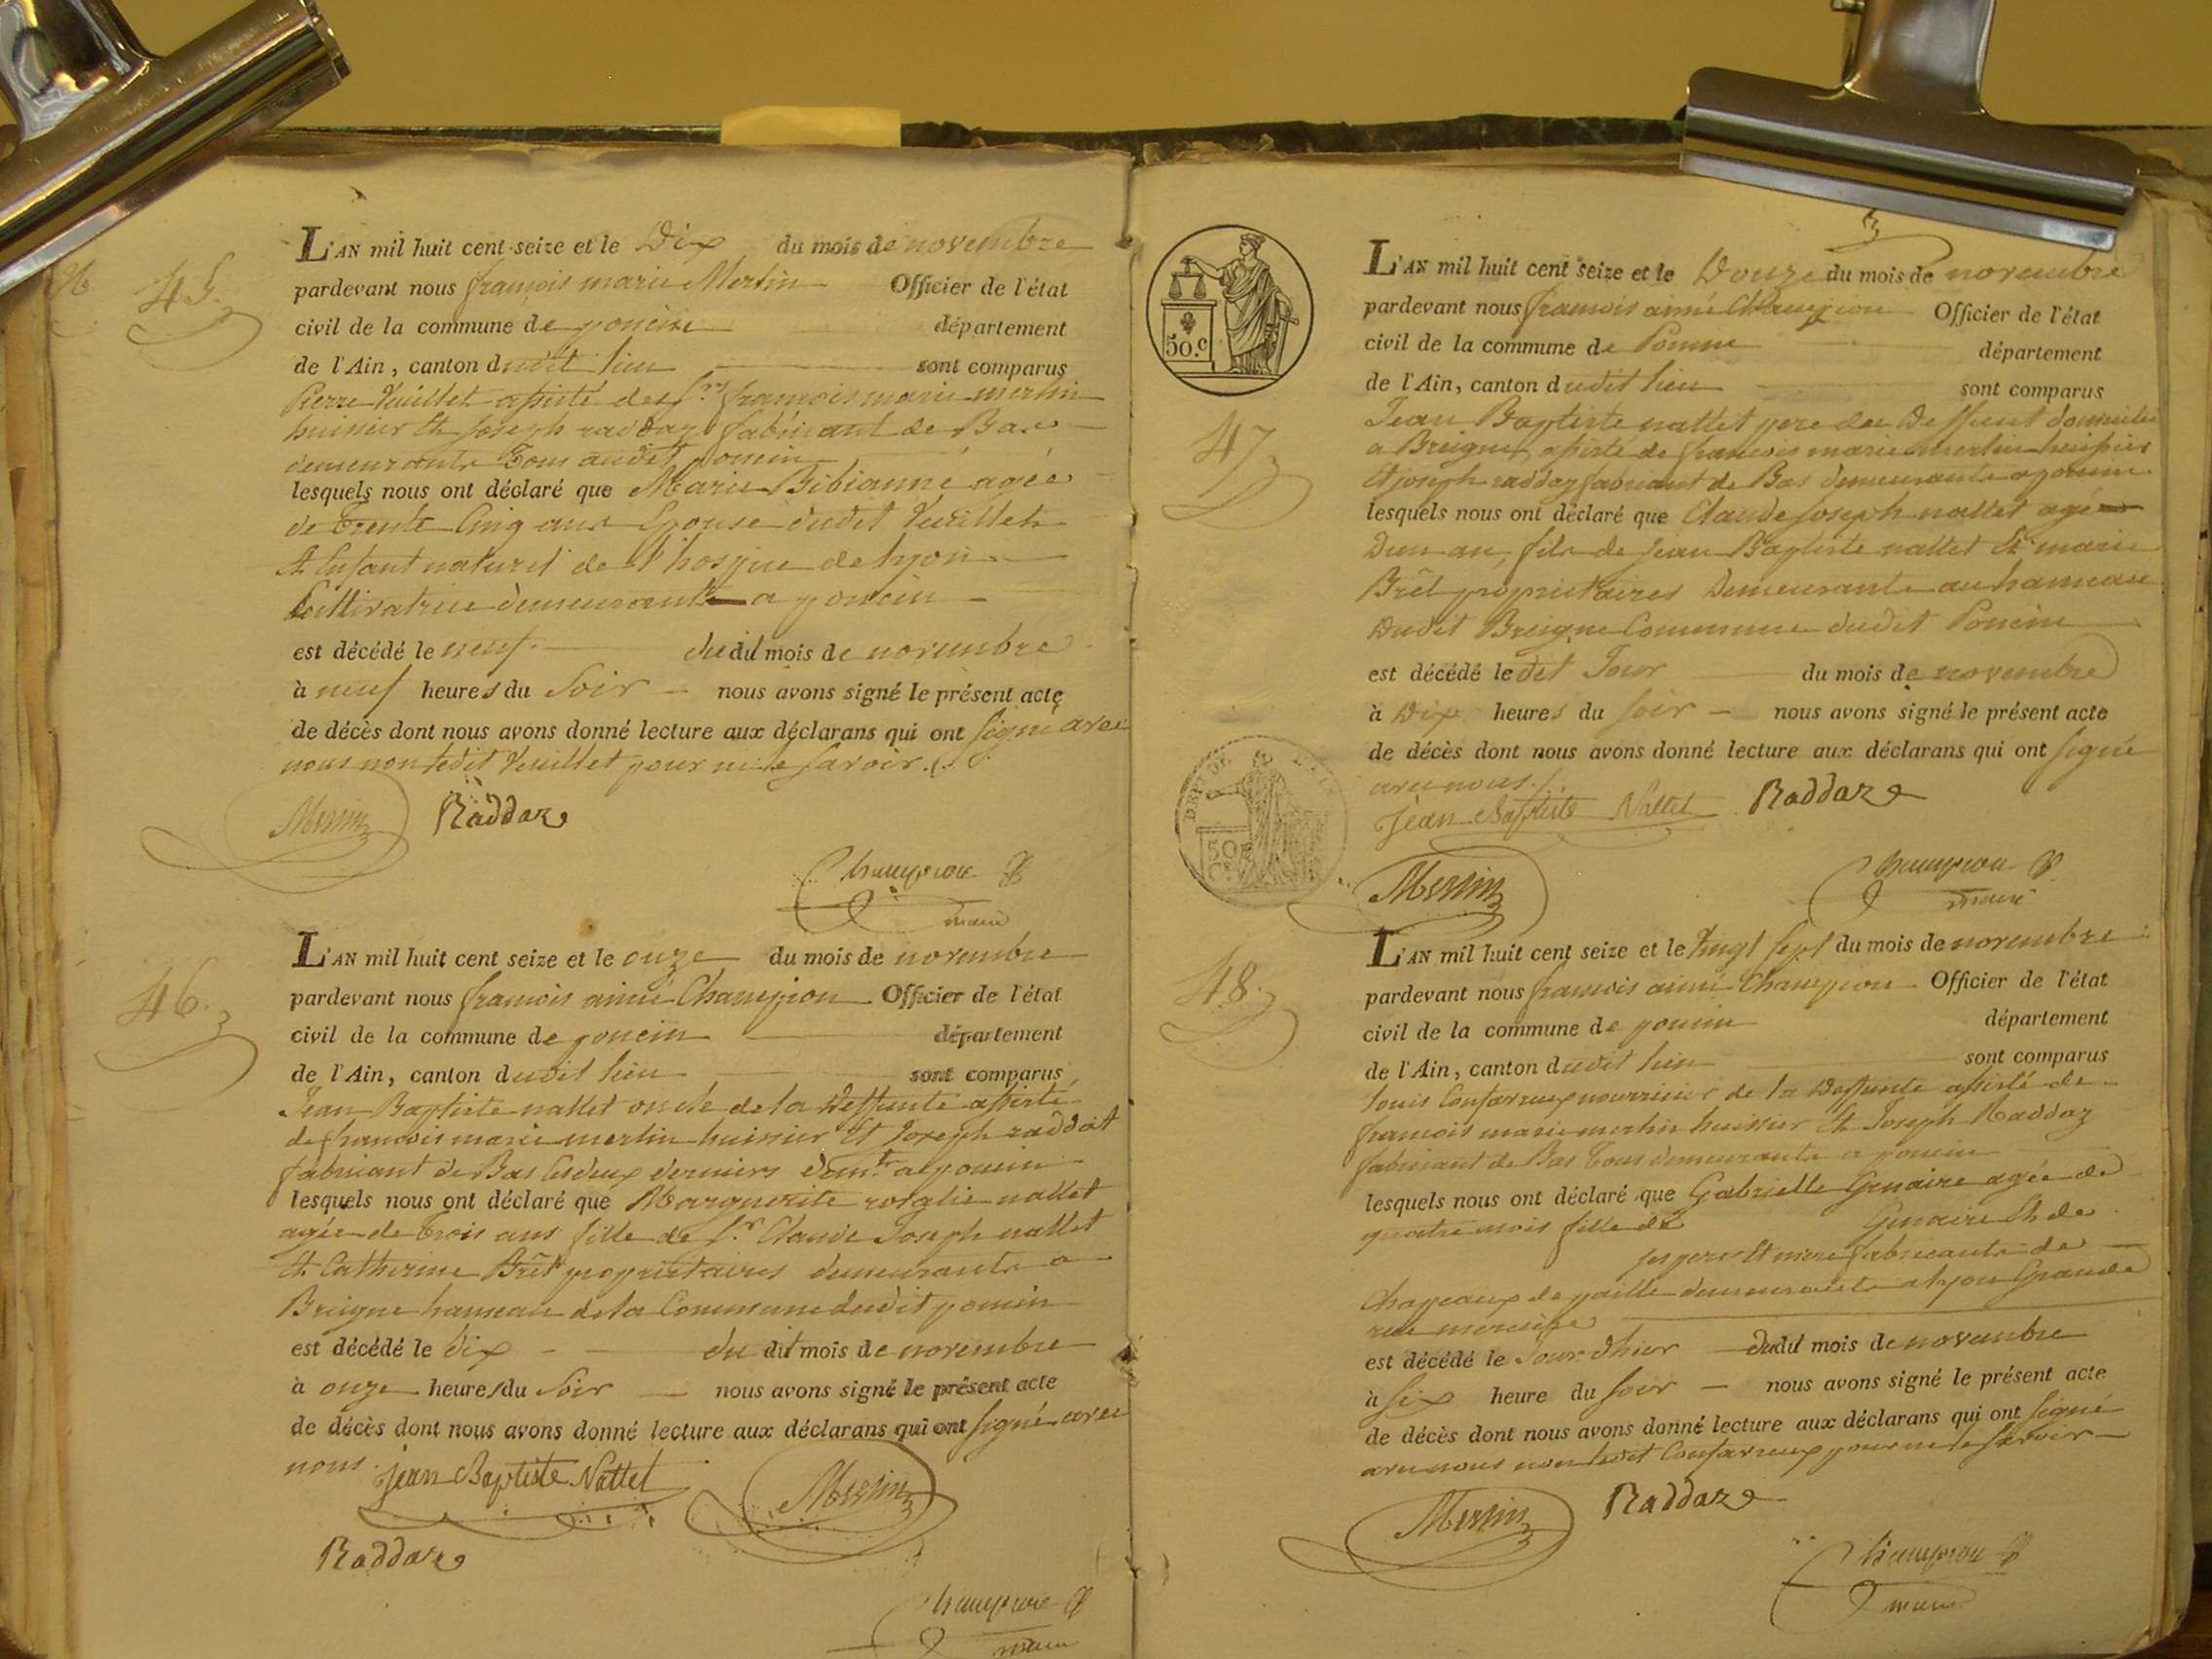 45.
L'AN mil huit cent seize et le Dix du mois de novembre
pardevant nous françois marie Merlin Officier de l'état
civil de la commune de poncin département
de l'Ain, canton dudit lieu sont comparus
Pierre Vuillet assisté des Srs françois marie merlin
huissier et Joseph raddaz fabricant de Bas
demeurants Tous audit poncin
lesquels nous ont déclaré que Marie Bibianne agée
de Trente Cinq ans Epouse dudit Vuillet
et Enfant naturel de l'hospice de lyon
Cultivatrice demeurante a poncin
est décédé le neuf du dit mois de novembre
à neuf heures du Soir nous avons signé le présent acte
de décès dont nous avons donné lecture aux déclarans qui ont signé avec
nous non ledit Vuillet pour ne le savoir
Merlin Raddaz
Champion
maire
46.
L'AN mil huit cent seize et le onze du mois de novembre
pardevant nous françois aimé Champion Officier de l'état
civil de la commune de poncin département
de l'Ain, canton dudit lieu sont comparus
Jean Baptiste nallet oncle de la deffunte assisté
de françois marie merlin huissier et Joseph raddat
fabricant de Bas les deux derniers demts a poncin
lesquels nous ont déclaré que Marguerite rosalie nallet
agée de Trois ans fille de Sr Claude Joseph nallet
et Catherine Brêt proprietaires demeurants a
Breigne hameau de la Commune dudit poncin
est décédé le dix du dit mois de novembre
à onze heures du Soir nous avons signé le présent acte
de décès dont nous avons donné lecture aux déclarans qui ont signé avec
nous. Jean Baptiste Nallet Merlin
Raddaz
Champion
maire
50.c
L'AN mil huit cent seize et le Douze du mois de novembre
pardevant nous françois aimé Champion Officier de l'état
civil de la commune de Poncin département
de l'Ain, canton dudit lieu sont comparus
47
Jean Baptiste nallet pere du Deffunt domicilié
a Breigne, assisté de françois marie merlin huissier
et joseph raddaz fabricant de Bas demeurants a poncin
lesquels nous ont déclaré que Claude Joseph nallet agé
Dun an, fils de Jean Baptiste nallet et marie
Brêt proprietaires Demeurants au hameau
Dudit Breigne Commune dudit Poncin
est décédé le dit Jour du mois de novembre
à Dix heures du soir nous avons signé le présent acte
de décès dont nous avons donné lecture aux déclarans qui ont signé
avec nous.
Jean Baptiste Nallet Raddaz
Merlin Champion
maire
48.
L'AN mil huit cent seize et le Vingt sept du mois de novembre
pardevant nous françois aimé Champion Officier de l'état
civil de la commune de poncin département
de l'Ain, canton dudit lieu sont comparus
louis nourricier de la Deffunte assisté de
françois marie merlin huissier et Joseph Raddaz
fabricant de Bas Tous demeurants a poncin
lesquels nous ont déclaré que Gabrielle Genaire agée de
quatre mois fille de Genaire et de
ses pere et mere fabricants de
Chapeaux de paille demeurants a lyon Grande
rue merciere
est décédé le Jour dhier dudit mois de novembre
à six heure du soir nous avons signé le présent acte
de décès dont nous avons donné lecture aux déclarans qui ont signé
avec nous non ledit pour ne le savoir
Merlin Raddaz
Champion
maire